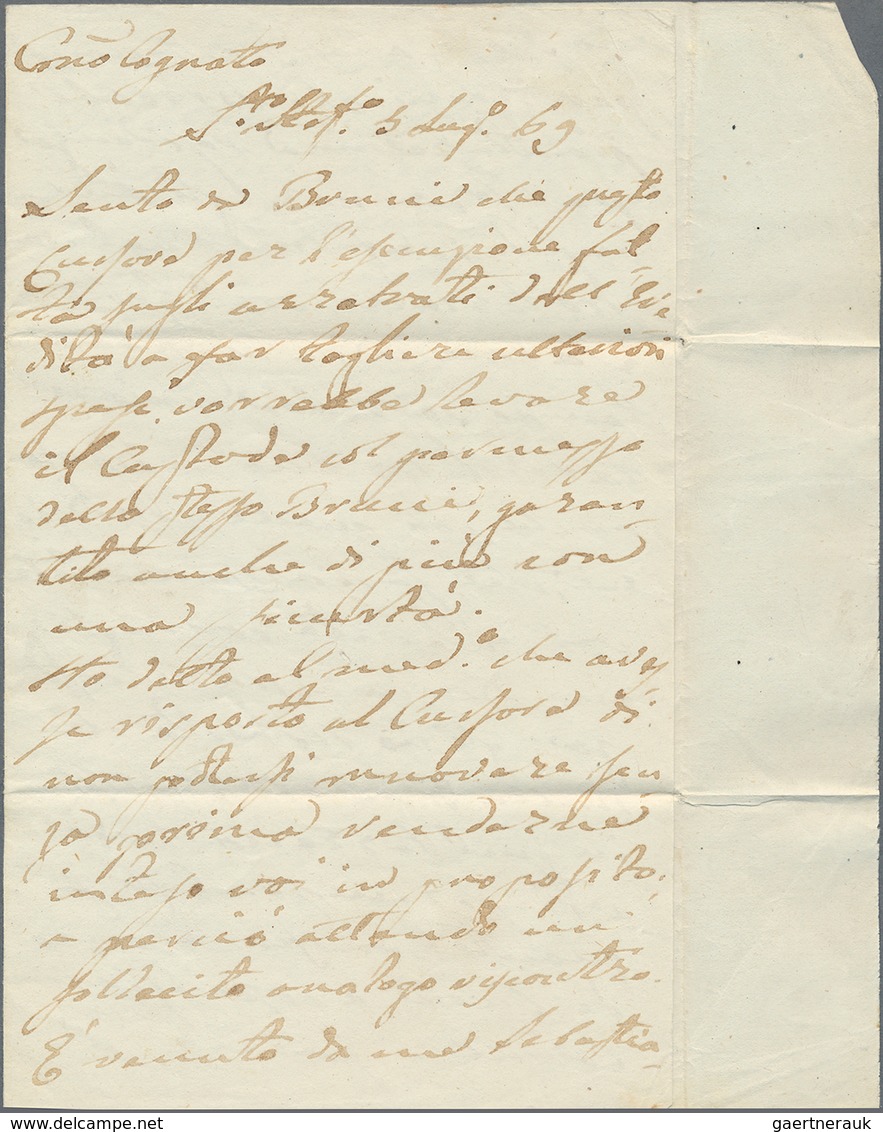 Cognato
S.to Stef.o 5 Lug.o 69
Sento da Bruni che questo
Cursore per l'esecuzione fat
ta sugli arretrati dell'Ere
dità a far togliere ulteriori
spese. vorrebbe levare
il Custode col permesso
dello stesso Bruni, garan-
tito anche di più con
una sicurtà.
Ho detto al med.o che aves
se risposto al Cursore di
non potersi rinnovare sen
za prima renderne
inteso voi in proposito,
e perciò attendo un
sollecito analogo riscontro.
E' venuto da me Sebastia-
delcampe.net
gaertnerauk